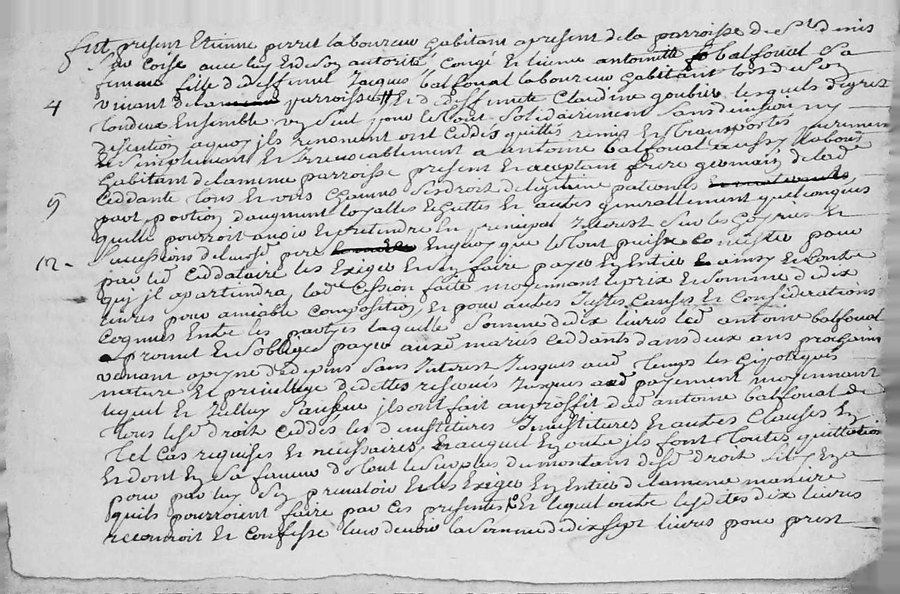 fut present Etienne perret laboureur habitant apresent de la parroisse de St denis
sur Coise avec luy Et de son autorité Congé Et licence antoinette balfoual sa
femme fille de deffunct Jaques balfoual laboureur habitant lors de son
4 vivant de la parroisse Et de deffuncte Claudine goubier lesquels degret
tondeux Ensemble un seul pour le tout solidairement sans division ny
discution aquoy jls renoncent ont Ceddés quittés remis Et transportés purement
Et simplement Et Irrevocablement a antoine balfoual aussy laboureur
habitant de la meme parroisse present Et aceptant frere germain de lad
Ceddante tous Et uns chacuns ses droit de legitime paternels
5 part portion daugment loyalles Eschuttes Et autres generallement quelconques
quelle pourroit avoir Et pretendre En principal Interest sur les hoyries Et
successions de leurs pere Enquoy que le tout puisse Consister pour
12 - par led Ceddataire les Exiger Et sen faire payer En Entier ainsy Et Contre
quj jl apartiendra lad Cession faite moyennant le prix Et somme de dix
livres pour amiable Composition, Et pour autres Justes Causes Et Considerations
Cognues Entre les partjes laquelle somme de dix livres led antoine balfoual
promet Et soblige payer auxd mariés Ceddants dans deux ans prochain
venant apeyne de depens sans Interest Jusques aud temps les hipoteques
nature Et privillege de dettes reservés Jusques aud payement moyennant
lequel Et Icelluy jls ont fait au proffit dud antoine balfoual de
tous lesd droits Ceddés les demistitures Inuestitures Et autres Clauses En
tel Cas requises Et necessaires, Et auquel En outre jls font toutes quittations
Et dont En sa faveur de tout le surplus du montant desd droit
pour par luy sen prevaloir Et les Exiger En Entier de la meme maniere
quils pourroient faire par Ces presentes Et lequel outre lesdites dix livres
reconnoit Et Confesse leur devoir la somme de dix sept livres pour prest